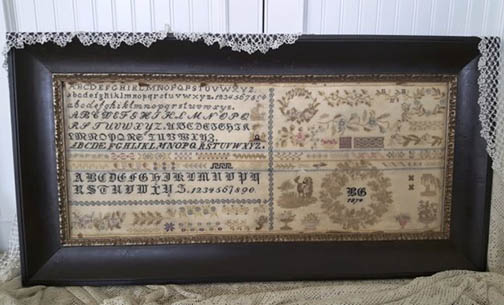 ABCDEFGHIJKLMNOPQRSTUVWXYZ
abcdefghiklmnopqrstuvwxyz.1234567890
abcdefghiklmnopqrstuvwxyz.
ABCDEFGHIKLMNOPQ
RSTUVWXYZ.ABCDEFGHIK
LMNOPQRSTUVWXYZ.
ABCDEFGHIJKLMNOPQRSTUVWXYZ.
ABCDEFGHIJKLMNOPQ
RSTUVWXYZ.1234567890.
BG
1870